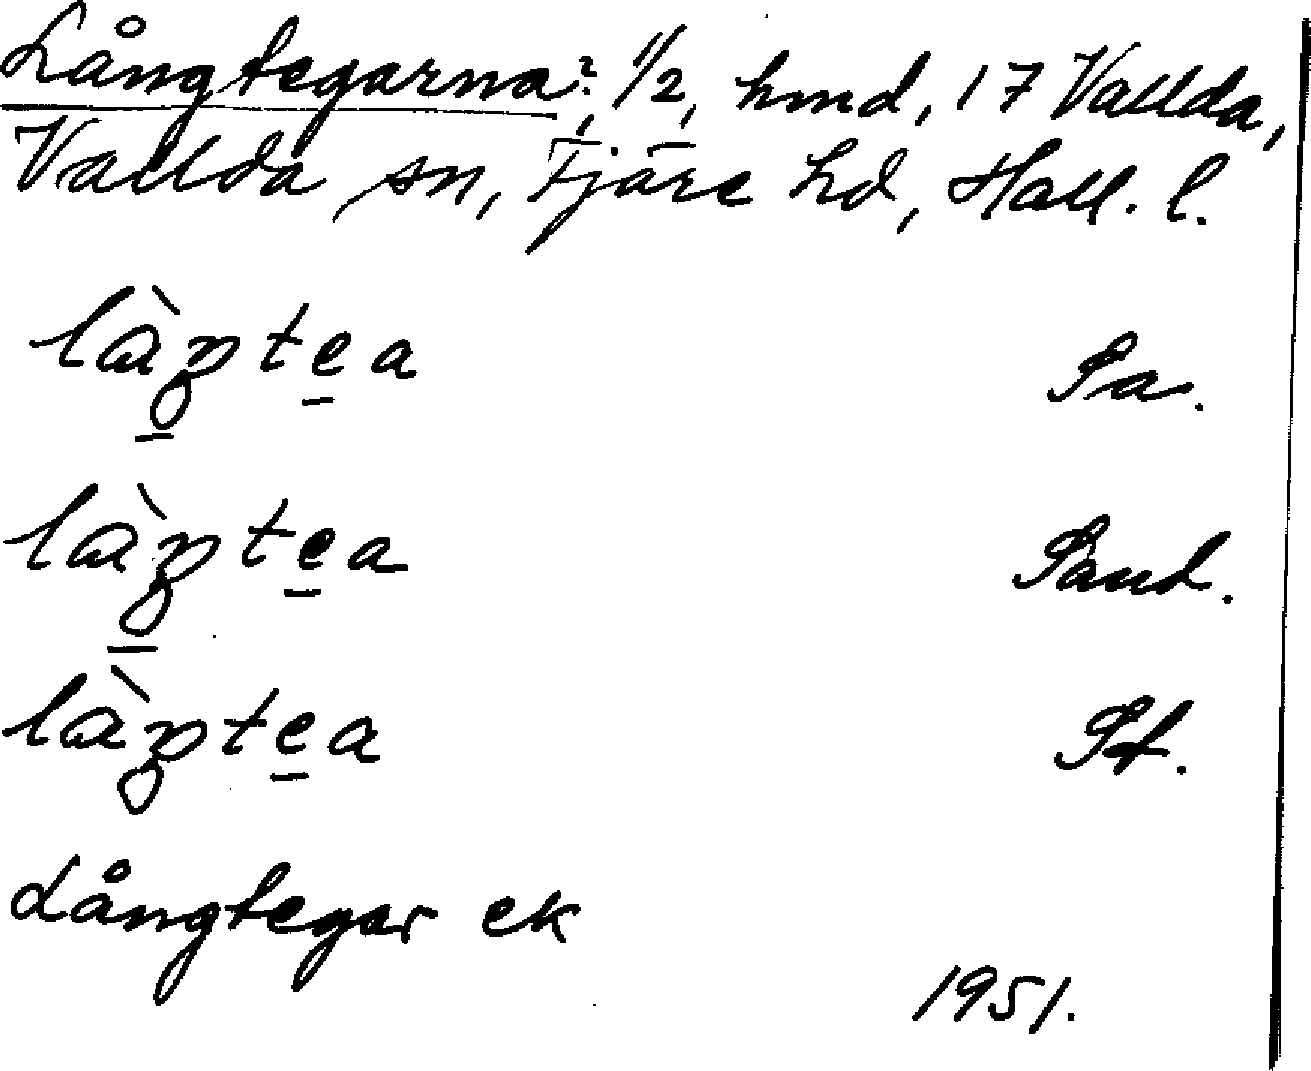 Långtegarna?, 1/2, hmd, 17 Vallda,
Vallda sn, Fjäre hd, Hall. l.
làŋtea Sa.
làŋtea Sand.
làŋtea St.
Långtegar ek
1951.